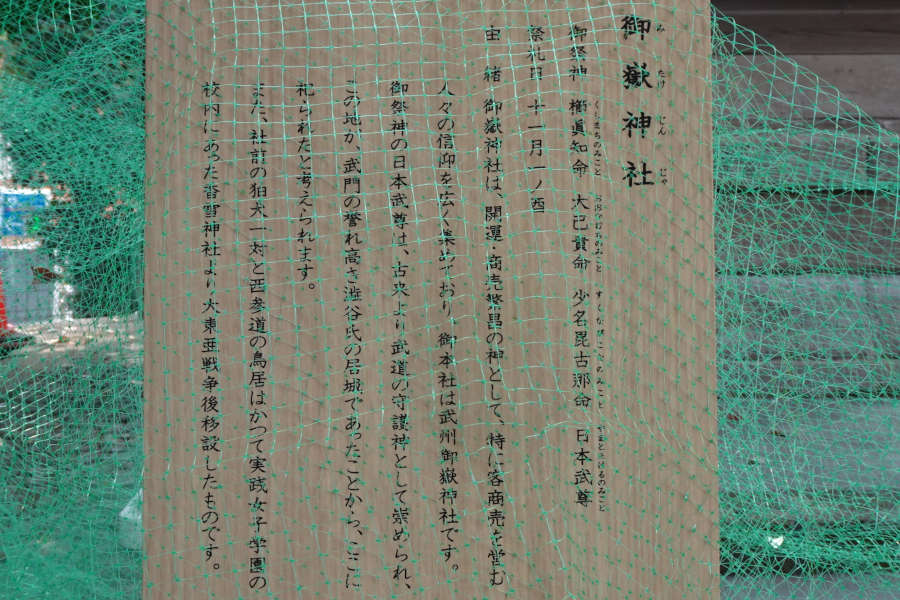 み たけ じん じゃ
御嶽神社
くしまちのみこと おおなむちのみこと すくなひこなのみこと やまとたけるのみこと
御祭神 櫛眞知命 大己貴命 少名毘古那命 日本武尊
祭礼日 十一月一ノ酉
由緒 御嶽神社は、開運・商売繁昌の神として、特に客商売を営む
人々の信仰を広く集めており、御本社は武州御嶽神社です。
御祭神の日本武尊は、古来より武道の守護神として崇められ、
この地が、武門の誉れ高き澁谷氏の居城であったことから、ここに
祀られたと考えられます。
また、社前の狛犬一対と西参道の鳥居はかつて実践女子学園の
校内にあった香雪神社より大東亜戦争後移設したものです。